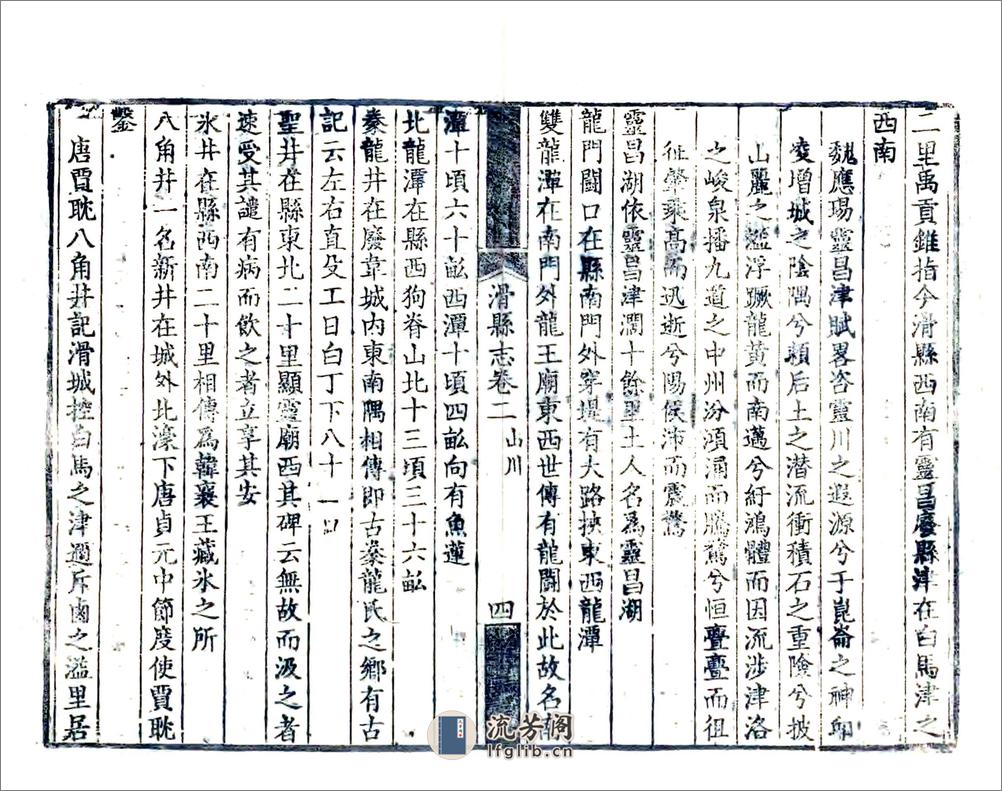 二里禹貢錐指今滑縣西南有靈昌廢縣津在白馬津之
西南
魏應瑒靈昌津賦畧咨靈川之遐源兮于崑崙之神
凌增城之陰隅兮頼后土之潜流衝積石之重險兮披
山麗之濫浮蹶龍黄而南邁兮紆鴻體而因流涉津洛
之峻泉播九道之中州汾澒涌而騰騖兮恒亹亹而徂
征肇乘高而迅逝兮陽侯沛而震驚
靈昌湖依靈昌津濶十餘里土人名爲靈昌湖
龍門闘口在縣南門外穿堤有大路挾東西龍潭
雙龍潭在南門外龍王廟東西世傳有龍闘於此故名
滑縣志卷二 山川 四
潭十頃六十畝西潭十頃四畝向有魚蓮
北龍潭在縣西狗脊山北十三頃三十六畝
豢龍井在廢韋城内東南隅相傳即古豢龍氏之鄉有古
記云左右直殳工日白丁下八十一口
聖井在縣東北二十里顯靈廟西其碑云無故而汲之者
速受其譴有病而飲之者立享其安
氷井在縣西南二十里相傳爲韓襄王藏氷之所
八角井一名新井在城外北濠下唐貞元中節度使賈耽
鑿
唐賈耽八角井記滑城控白馬之津邇斥鹵之濫里居
流芳阁
lfglib.cn